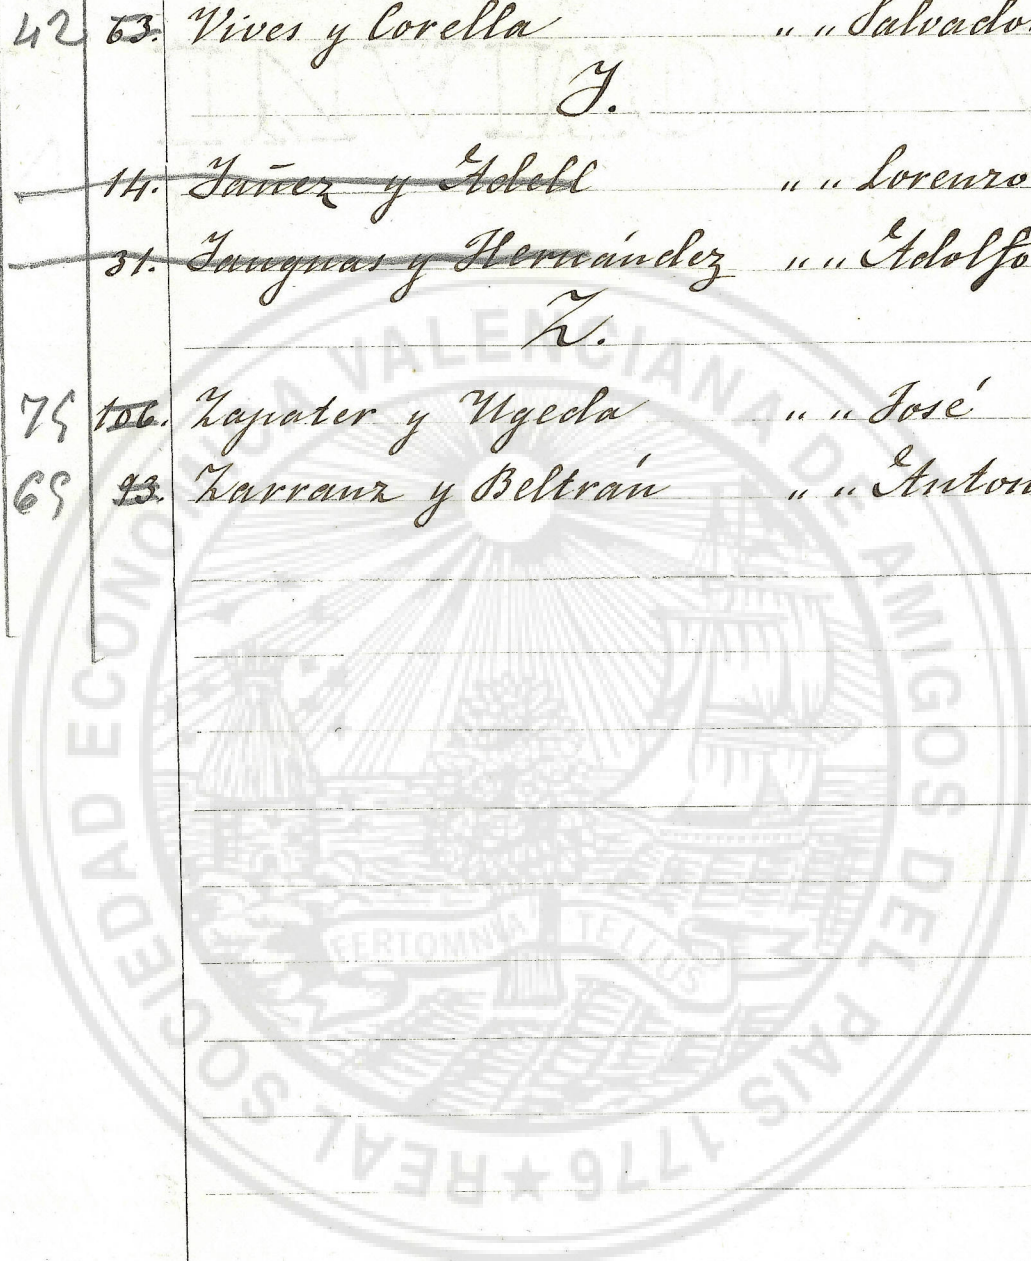 42 63. Vives y Corella " " Salvado
Y.
14. Yañez y Adell " " Lorenzo
31. Yanguas y Hernández " " Adolfo
Z.
75 106. Zapater y Ugeda " " José
65 93. Zarranz y Beltrán " " Anton
REAL SOCIEDAD ECONOMICA VALENCIANA DE AMIGOS DEL PAIS 1776
FERT OMNIA TELLUS